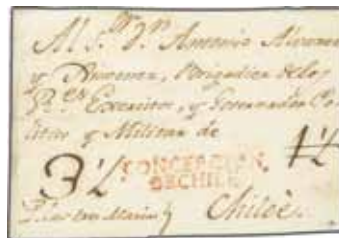 Al S.ᵒʳ D.ⁿ Antonio Alvarez
y Ximenez, Brigadier de los
R.ᵉˢ Exercitos, y Governador Po
litico y Militar de
CONCEPCION.
DECHILE
3½
Chiloè